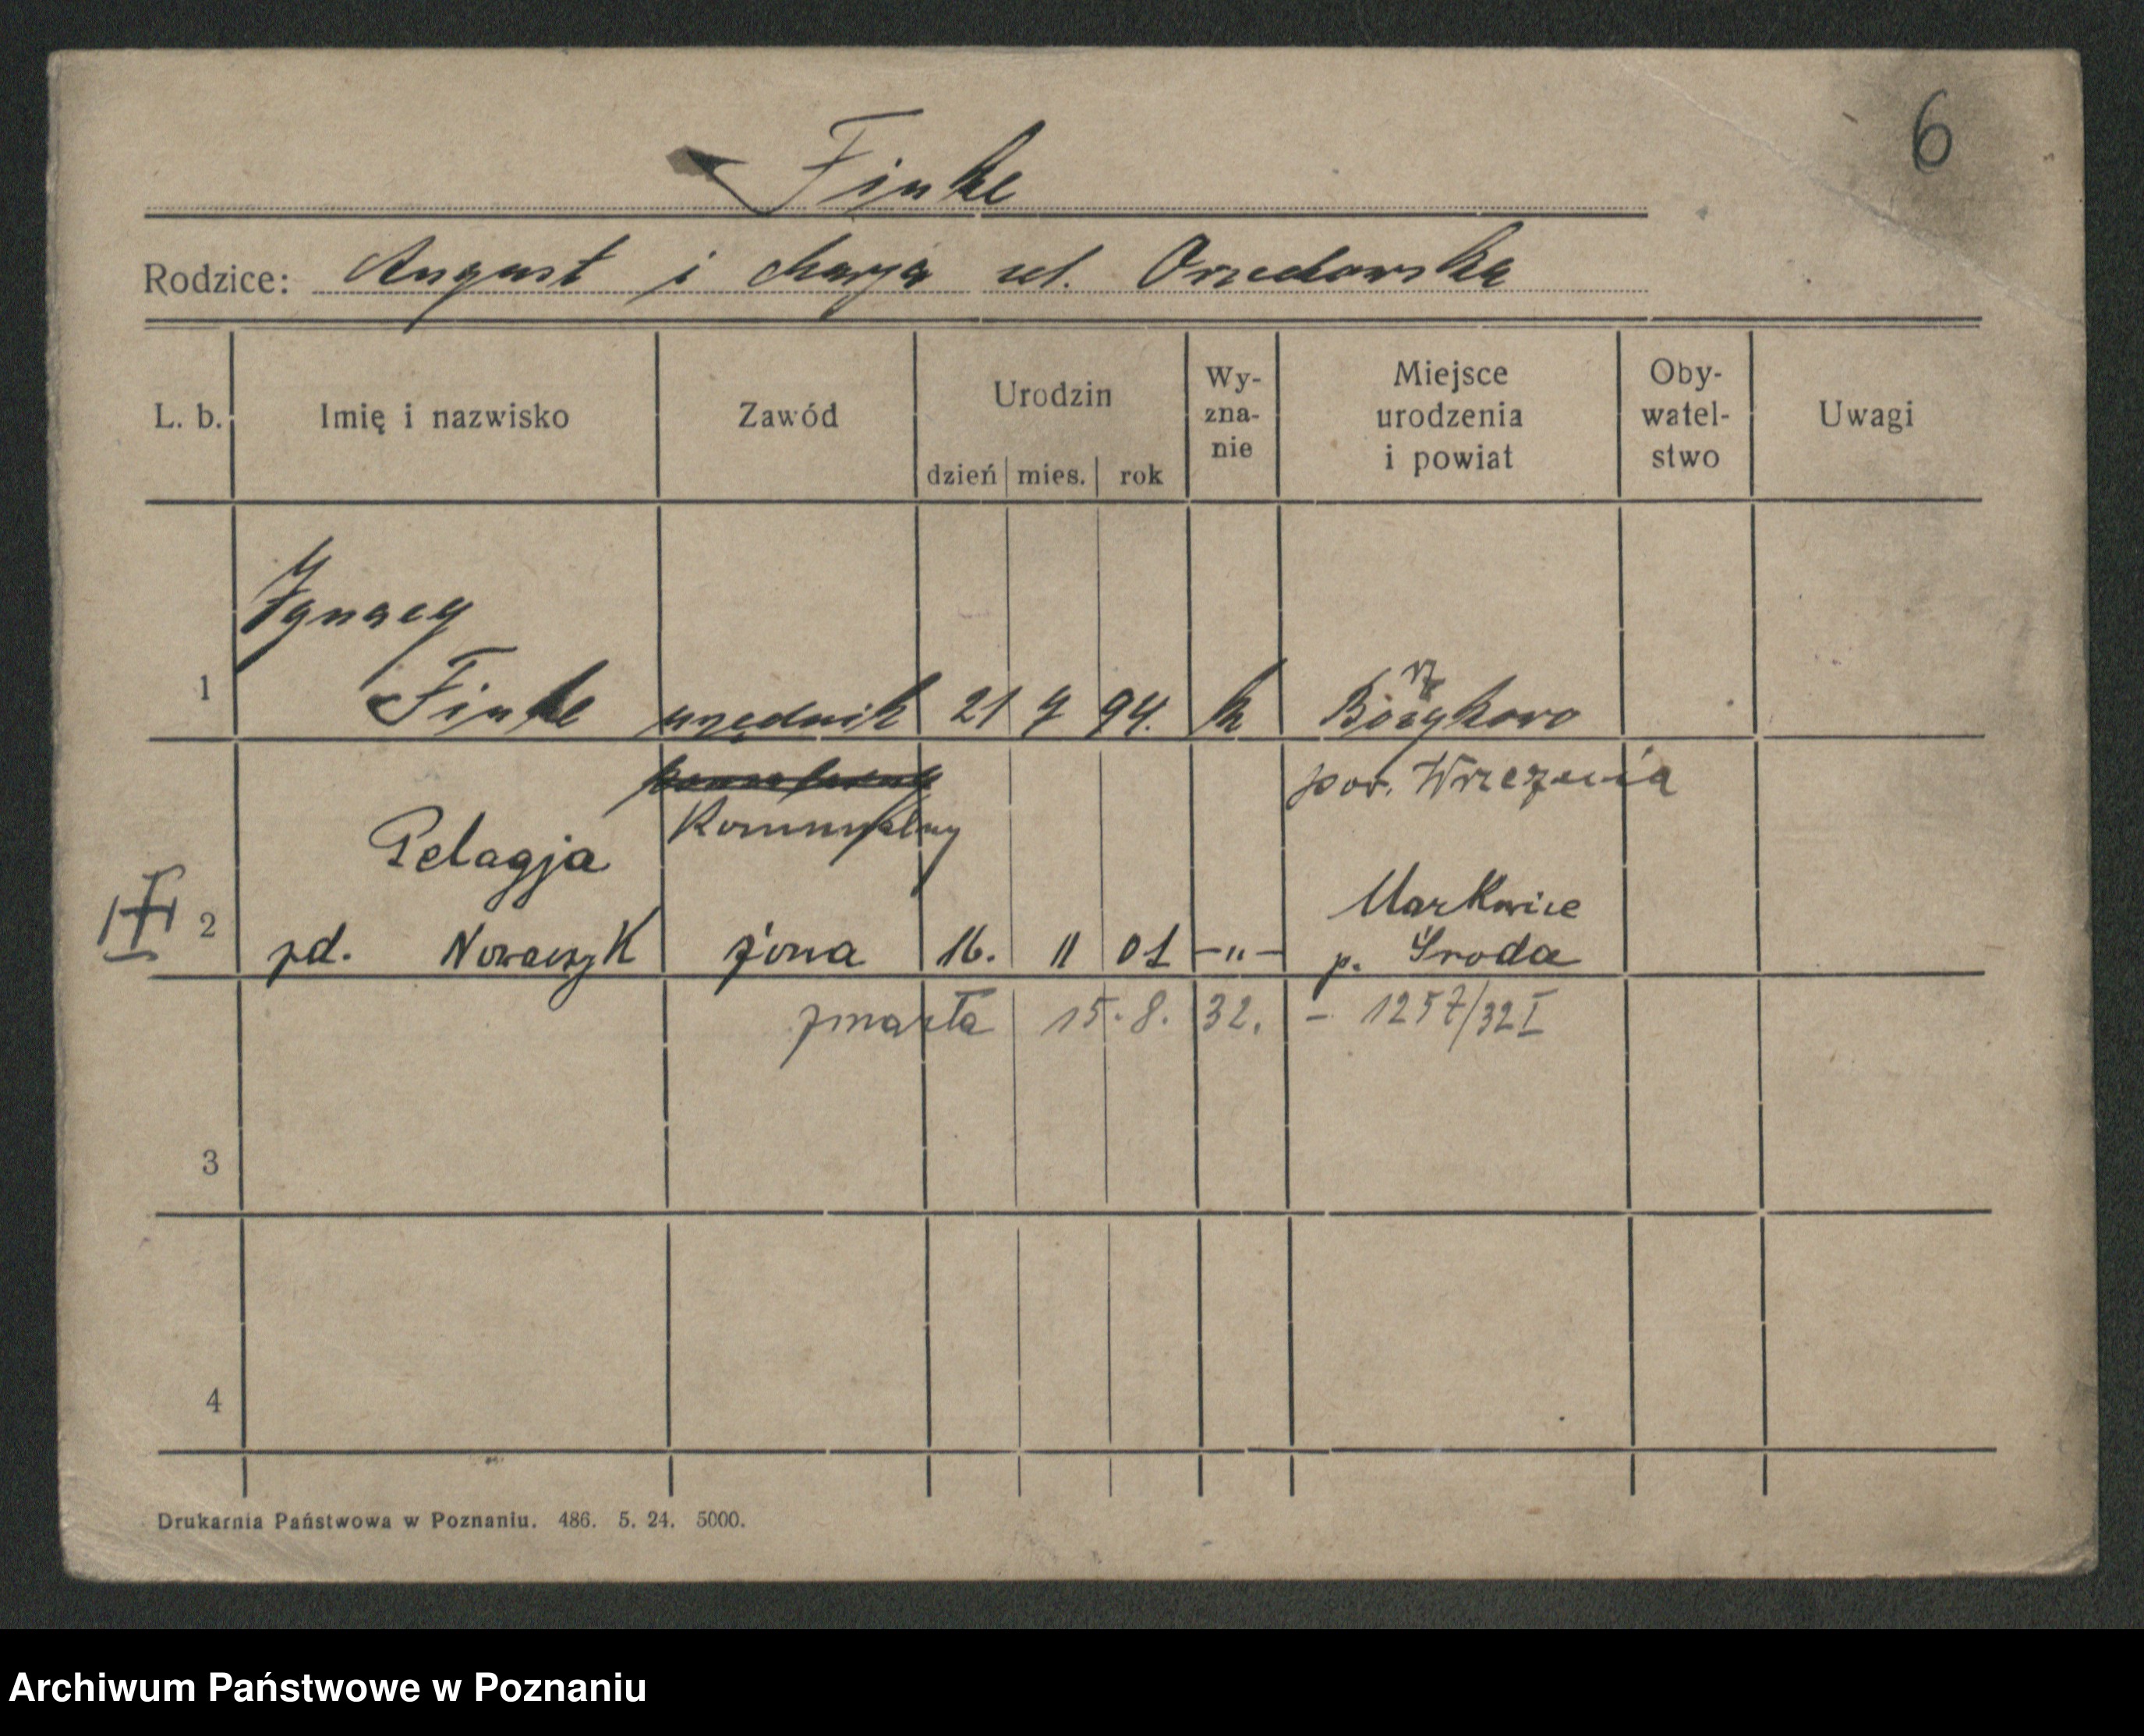 6
Finke
Rodzice: August i Marja zd. Orzedowska
L. b. Imię i nazwisko Zawód Urodzin dzień mies. rok Wy-zna-nie Miejsce urodzenia i powiat Oby-watel-stwo Uwagi
Ignacy
1 Finke urzędnik 21 7 94. k Bożykowo
rz
pow. Września
Komunalny
Pelagja
Markowice
2 zd. Nowaczyk żona 16. 11 01 -"- p. Środa
zmarła 15.8.32. - 1257/32 I
3
4
Drukarnia Państwowa w Poznaniu. 486. 5. 24. 5000.
Archiwum Państwowe w Poznaniu